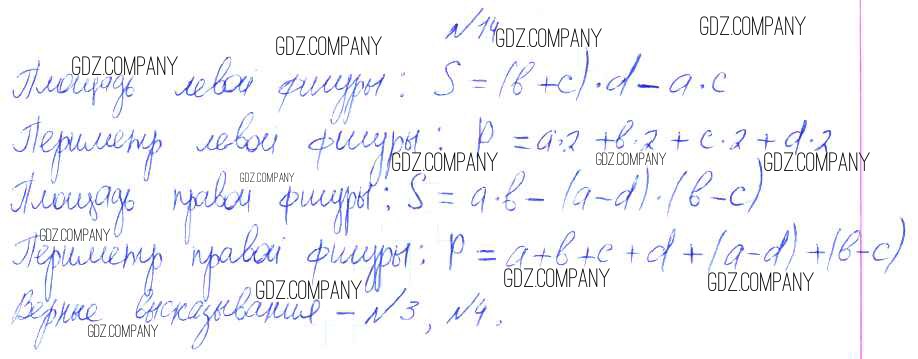 №14
GDZ.COMPANY
GDZ.COMPANY
GDZ.COMPANY
GDZ.COMPANY
Площадь левой фигуры: S = (b + c) · d – a · c
Периметр левой фигуры: P = a·2 + b·2 + c·2 + d·2
GDZ.COMPANY
GDZ.COMPANY
GDZ.COMPANY
GDZ.COMPANY
Площадь правой фигуры: S = a·b – (a–d)·(b–c)
GDZ.COMPANY
Периметр правой фигуры: P = a+b+c+d+(a–d)+(b–c)
GDZ.COMPANY
GDZ.COMPANY
GDZ.COMPANY
Верные высказывания – №3, №4.
GDZ.COMPANY